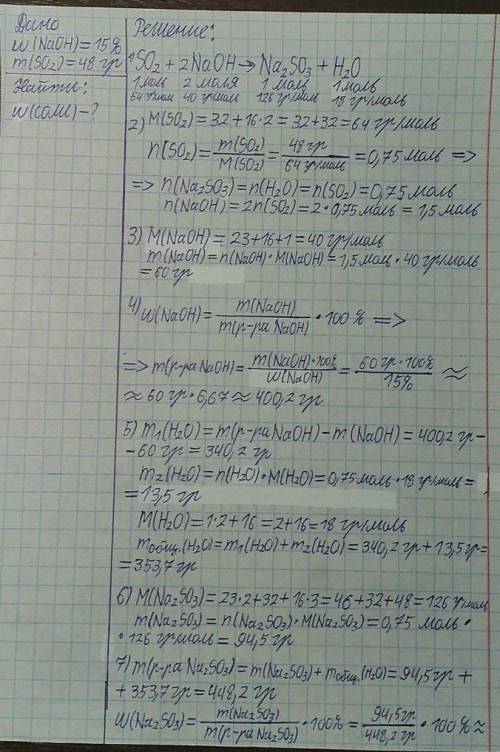 Дано
w(NaOH)=15%
m(SO₂)=48 гр
Найти:
w(соли)-?
Решение:
1) SO₂ + 2NaOH → Na₂SO₃ + H₂O
1 моль 2 моля 1 моль 1 моль
64 гр/моль 40 гр/моль 126 гр/моль 18 гр/моль
2) M(SO₂)=32+16·2=32+32=64 гр/моль
n(SO₂)=m(SO₂)/M(SO₂)=48 гр/64 гр/моль=0,75 моль =>
=> n(Na₂SO₃)=n(H₂O)=n(SO₂)=0,75 моль
n(NaOH)=2n(SO₂)=2·0,75 моль=1,5 моль
3) M(NaOH)=23+16+1=40 гр/моль
m(NaOH)=n(NaOH)·M(NaOH)=1,5 моль·40 гр/моль
=60 гр
4) w(NaOH)=m(NaOH)/m(р-ра NaOH)·100% =>
=> m(р-ра NaOH)=m(NaOH)·100%/w(NaOH)=60 гр·100%/15% ≈
≈ 60 гр·6,67 ≈ 400,2 гр
5) m₁(H₂O)=m(р-ра NaOH)-m(NaOH)=400,2 гр-
-60 гр=340,2 гр
m₂(H₂O)=n(H₂O)·M(H₂O)=0,75 моль·18 гр/моль=
=13,5 гр
M(H₂O)=1·2+16=2+16=18 гр/моль
mобщ.(H₂O)=m₁(H₂O)+m₂(H₂O)=340,2 гр+13,5 гр=
=353,7 гр
6) M(Na₂SO₃)=23·2+32+16·3=46+32+48=126 гр/моль
m(Na₂SO₃)=n(Na₂SO₃)·M(Na₂SO₃)=0,75 моль·
·126 гр/моль=94,5 гр
7) m(р-ра Na₂SO₃)=m(Na₂SO₃)+mобщ.(H₂O)=94,5 гр+
+353,7 гр=448,2 гр
w(Na₂SO₃)=m(Na₂SO₃)/m(р-ра Na₂SO₃)·100%=94,5 гр/448,2 гр·100% ≈